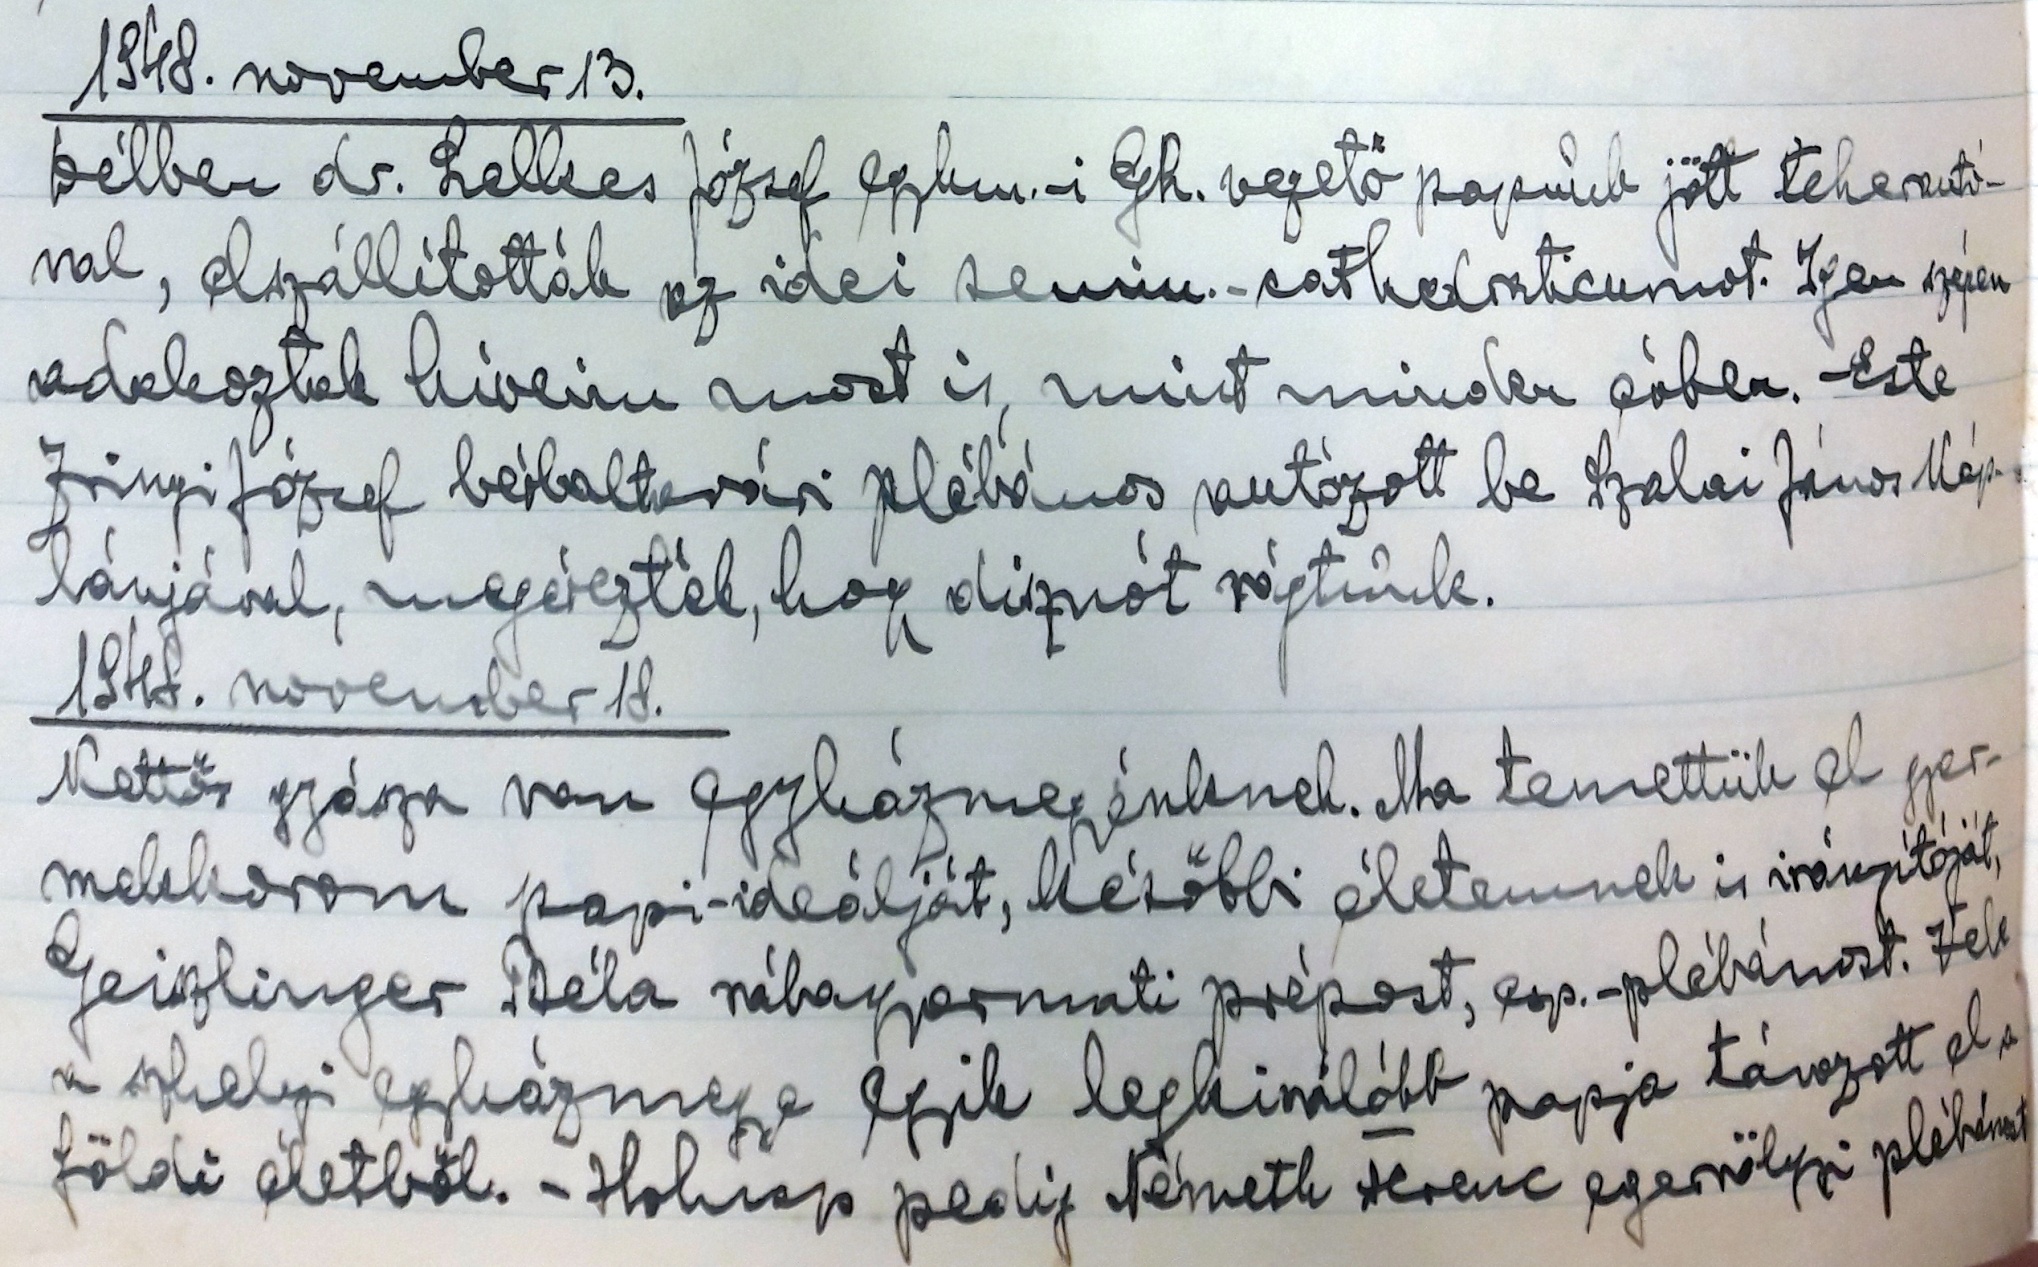 1948. november 13.
Délben dr. Lelkes József egyhm.-i Gh. vezető papunk jött teherautó-
val, elszállították az idei semin.-cathedraticumot. Igen szépen
adakoztak híveim most is, mint minden évben. - Este
Zrinyi József bérbaltavári plébános autózott be Szalai János káp-
lánjával, megérezték, hogy disznót vágtunk.
1948. november 18.
Kettős gyásza van egyházmegyénknek. Ma temettük el gyer-
mekkorom papi-ideálját, későbbi életemnek is irányítóját,
Geiszlinger Béla rábagyarmati prépost, esp.-plébánost. Vele
a szhelyi egyházmegye egyik legkiválóbb papja távozott el a
földi életből. - Holnap pedig Németh Ferenc egervölgyi plébánost